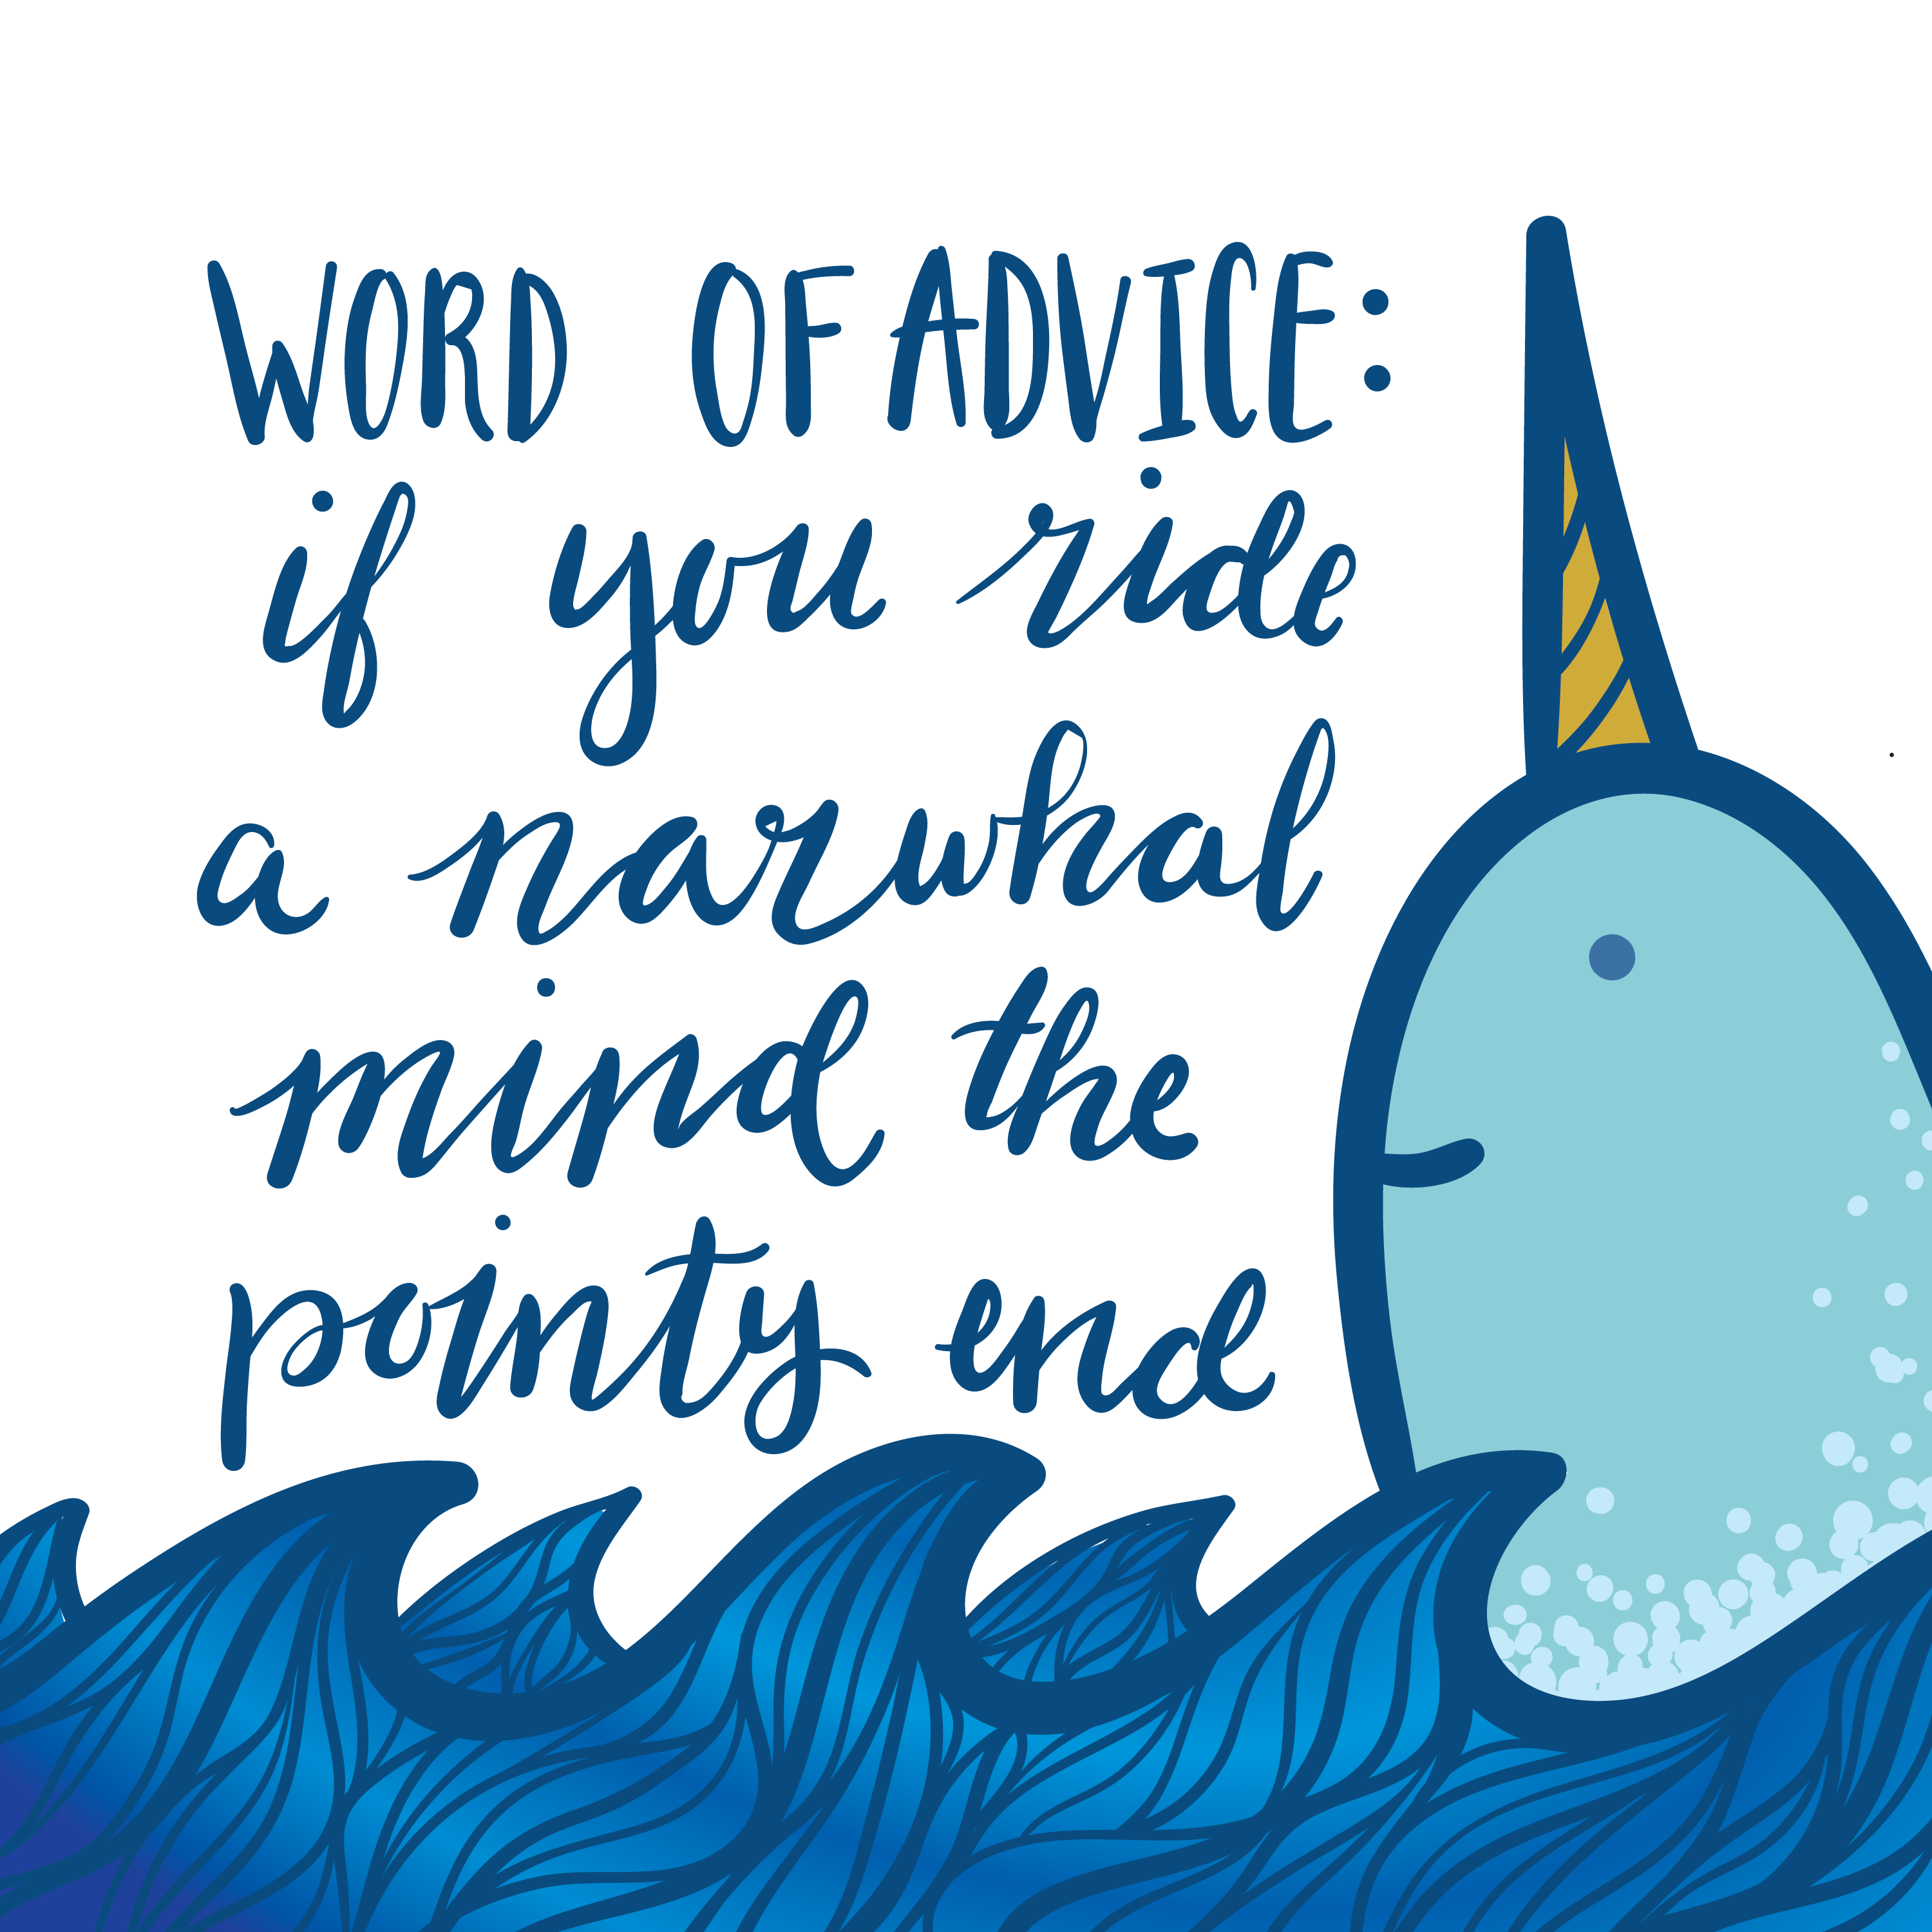 WORD OF ADVICE:
if you ride
a narwhal
mind the
pointy end